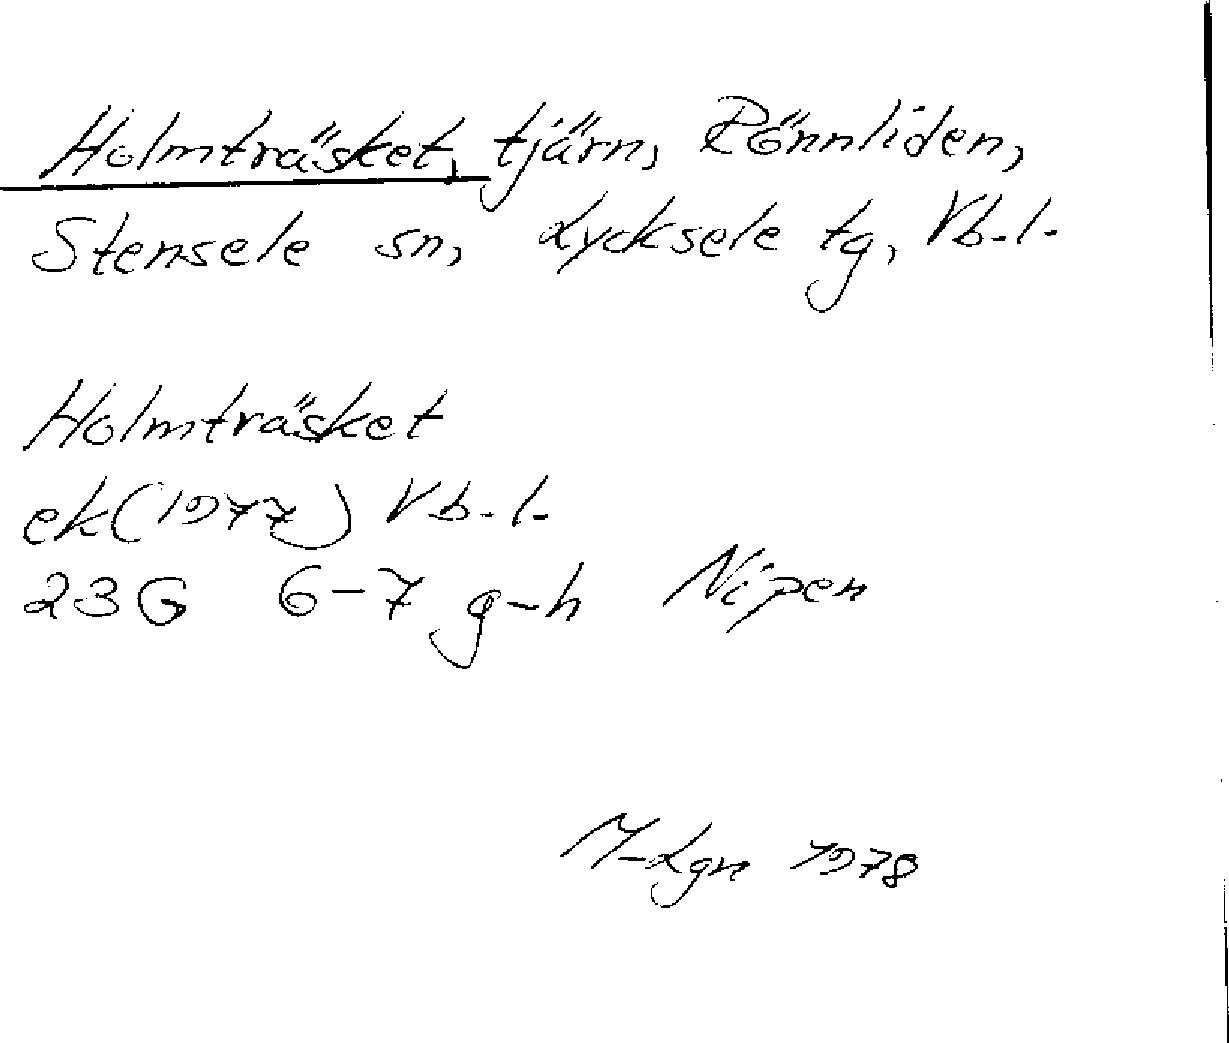 Holmträsket, tjärn, Rönnliden,
Stensele sn, Lycksele tg, Vb.l.
Holmträsket
ek(1977) Vb.l.
23G 6-7 g-h Nipen
M-Lgn 1978